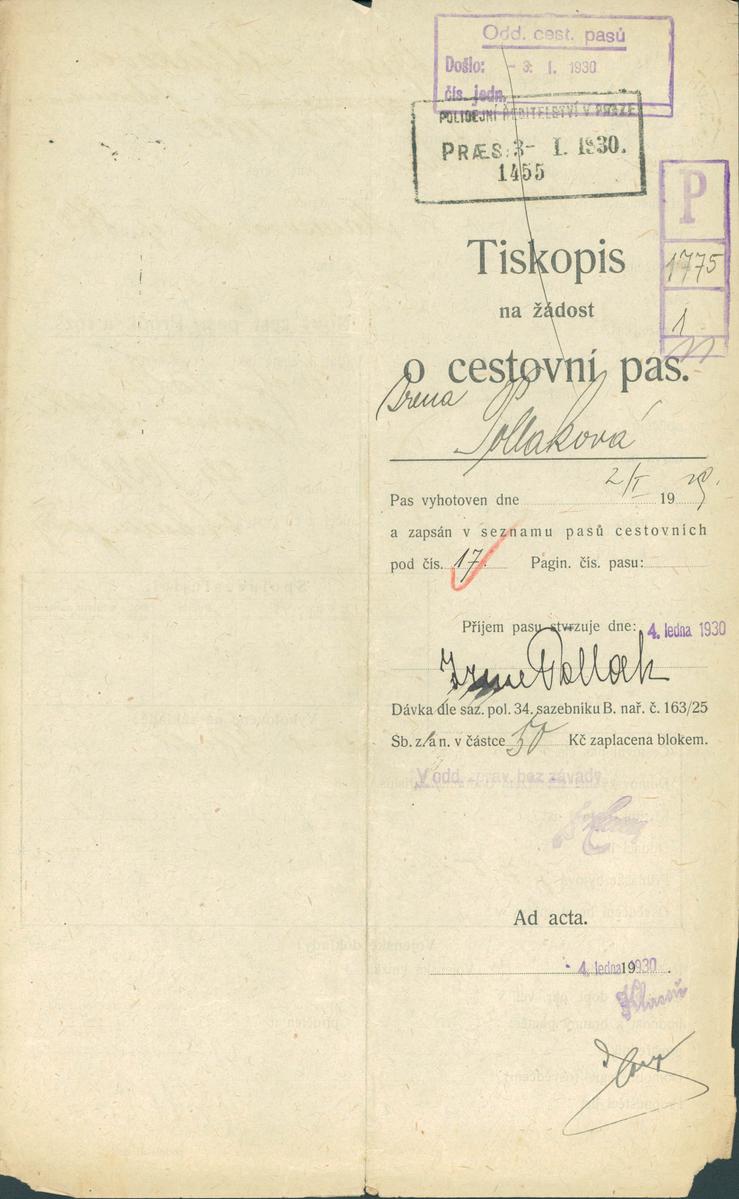 Odd. cest. pasů
Došlo: - 3. I. 1930
čís. jedn.
POLICEJNÍ ŘEDITELSTVÍ V PRAZE
PRÆS: 3- I. 1930.
1455
P
1775
1
Tiskopis
na žádost
o cestovní pas.
Irena
Pollaková
Pas vyhotoven dne 2/I 19
a zapsán v seznamu pasů cestovních
pod čís. 17. Pagin. čís. pasu:
Příjem pasu stvrzuje dne: 4. ledna 1930
Irene Pollak
Dávka dle saz. pol. 34. sazebníku B. nař. č. 163/25
Sb. z. a n. v částce 50 Kč zaplacena blokem.
V odd. zprav. bez závady
Ad acta.
- 4. ledna 1930